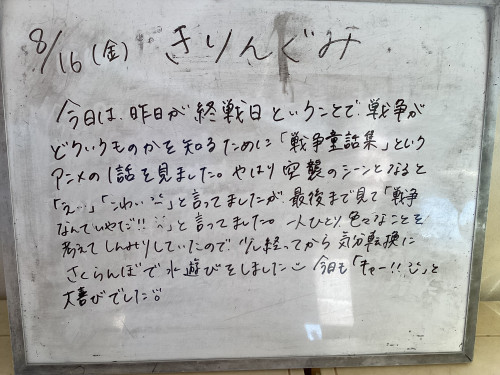 8/16(金) きりんぐみ
今日は、昨日が終戦日ということで、戦争が
どういうものかを知るために「戦争童話集」という
アニメの1話を見ました。やはり空襲のシーンとなると
「え…」「こわい…」と言ってましたが最後まで見て「戦争
なんていやだ!!」と言ってました。一人ひとり色々なことを
考えてしんみりしていたので、少し経ってから気分転換に
さくらんぼで水遊びをしました 今日も「キャー!!」と
大喜びでした。